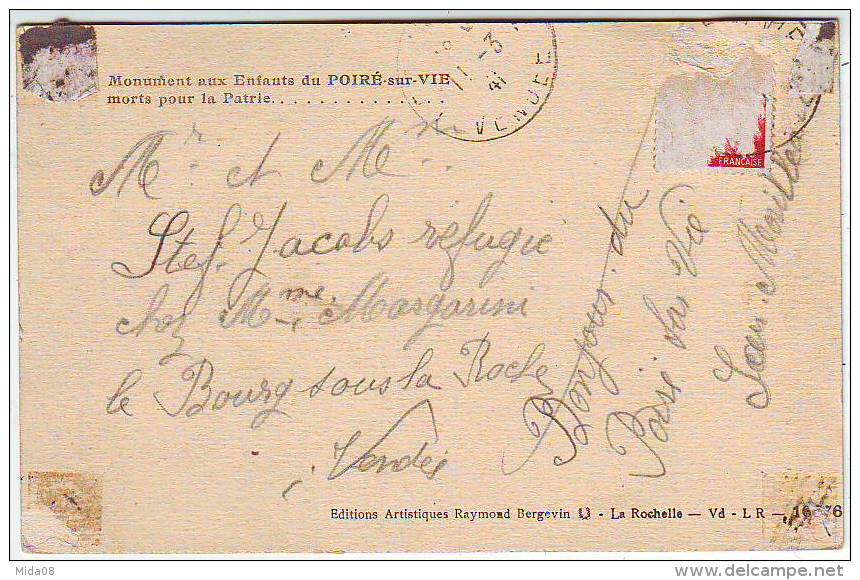 Monument aux Enfants du POIRÉ-sur-VIE
morts pour la Patrie..............
11 -3
41
VENDEE
FRANÇAISE
Mr et Mme
Stef. Jacobs réfugié
chez Mme Margarini
le Bourg sous la Roche
Vendée
Bonjour du
Poiré sur Vie
Editions Artistiques Raymond Bergevin - La Rochelle — Vd - L R —
Mida08
www.delcampe.net